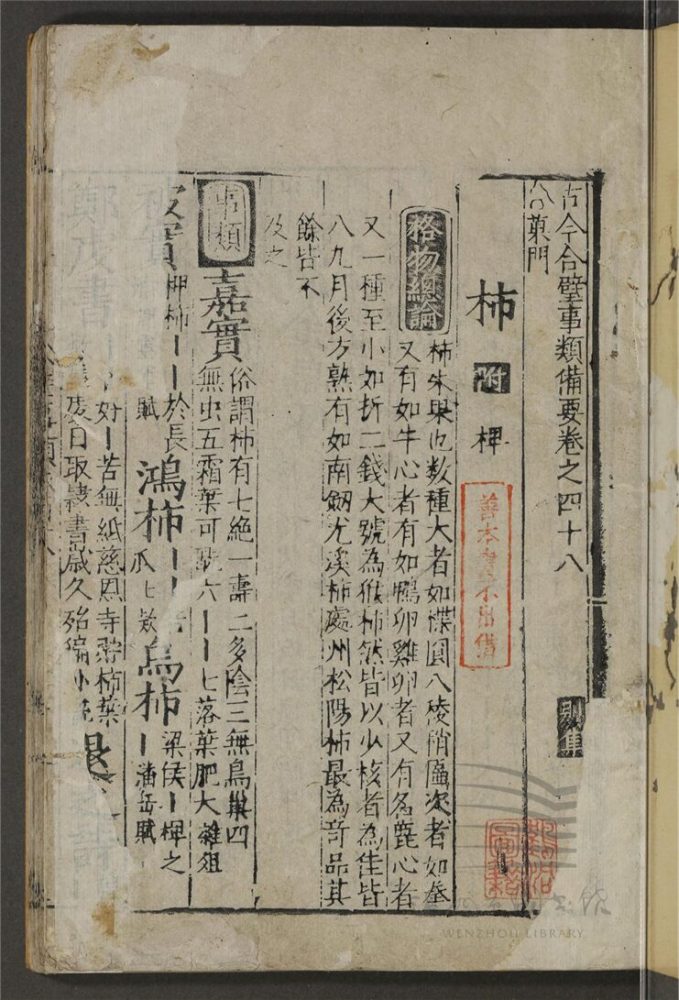 古今合璧事類備要卷之四十八
別集
菓門
柿 附 椑
善本書不出借
格物總論
柿朱果也数種大者如楪圓八稜稍匾次者如拳
又有如牛心者有如鴨卵雞卵者又有名鹿心者
又一種至小如折二錢大號為猴柿然皆以少核者為佳皆
八九月後方熟有如南劔尤溪柿處州松陽柿最為竒品其
餘皆不
及之
事類
嘉實
俗謂柿有七絕一壽二多陰三無鳥巢四
無虫五霜葉可玩六丨丨七落葉肥大雜俎
椑柿丨丨於長
賦
鴻柿
烏柿
梁侯丨椑之
丨潘岳賦
好丨苦無紙慈恩寺貯柿葉
日取隸書歲久殆徧
WENZHOU LIBRARY